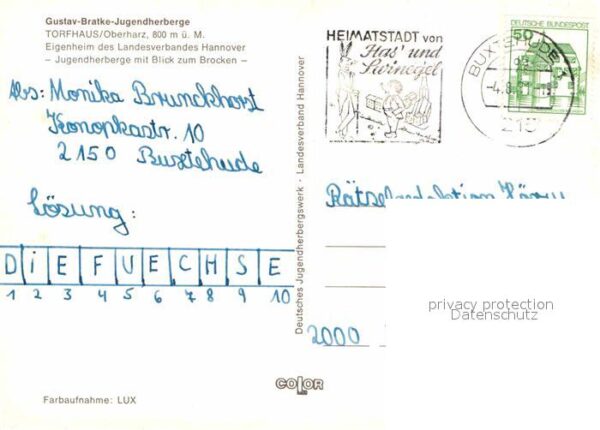 Gustav-Bratke-Jugendherberge
TORFHAUS/Oberharz, 800 m ü. M.
Eigenheim des Landesverbandes Hannover
– Jugendherberge mit Blick zum Brocken –
Abs: Monika Brunckhorst
Konopkastr. 10
2150 Buxtehude
Lösung:
DiE FUECHSE
1 2 3 4 5 6 7 8 9 10
Farbaufnahme: LUX
Deutsches Jugendherbergswerk · Landesverband Hannover
COLOR
HEIMATSTADT von
Has' und
Swinegel
BUXTEHUDE 1
50
DEUTSCHE BUNDESPOST
2000
privacy protection
Datenschutz